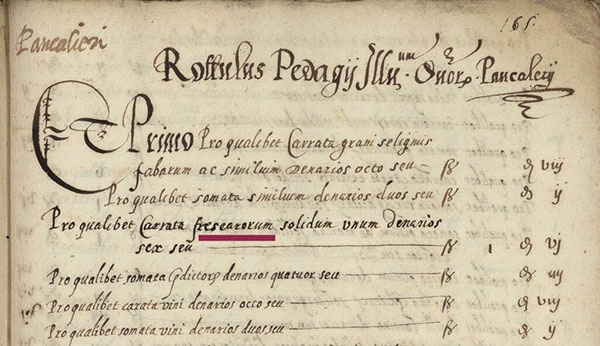 165.
Pancalieri
Rottulus Pedagij Illum. Dnor. Pancalerij
ET Primo Pro qualibet Carrata grani seliginis
fabarum ac similium denarios octo seu ß δ viij
Pro qualibet somata similium denarios duos seu ß δ ij
Pro qualibet Carrata fresearorum solidum unum denarios
sex seu ß 1 δ vj
Pro qualibet somata pdictor. denarios quatuor seu ß δ iiij
Pro qualibet carata vini denarios occo seu ß δ viij
Pro qualibet somata vini denarios duos seu ß δ ij